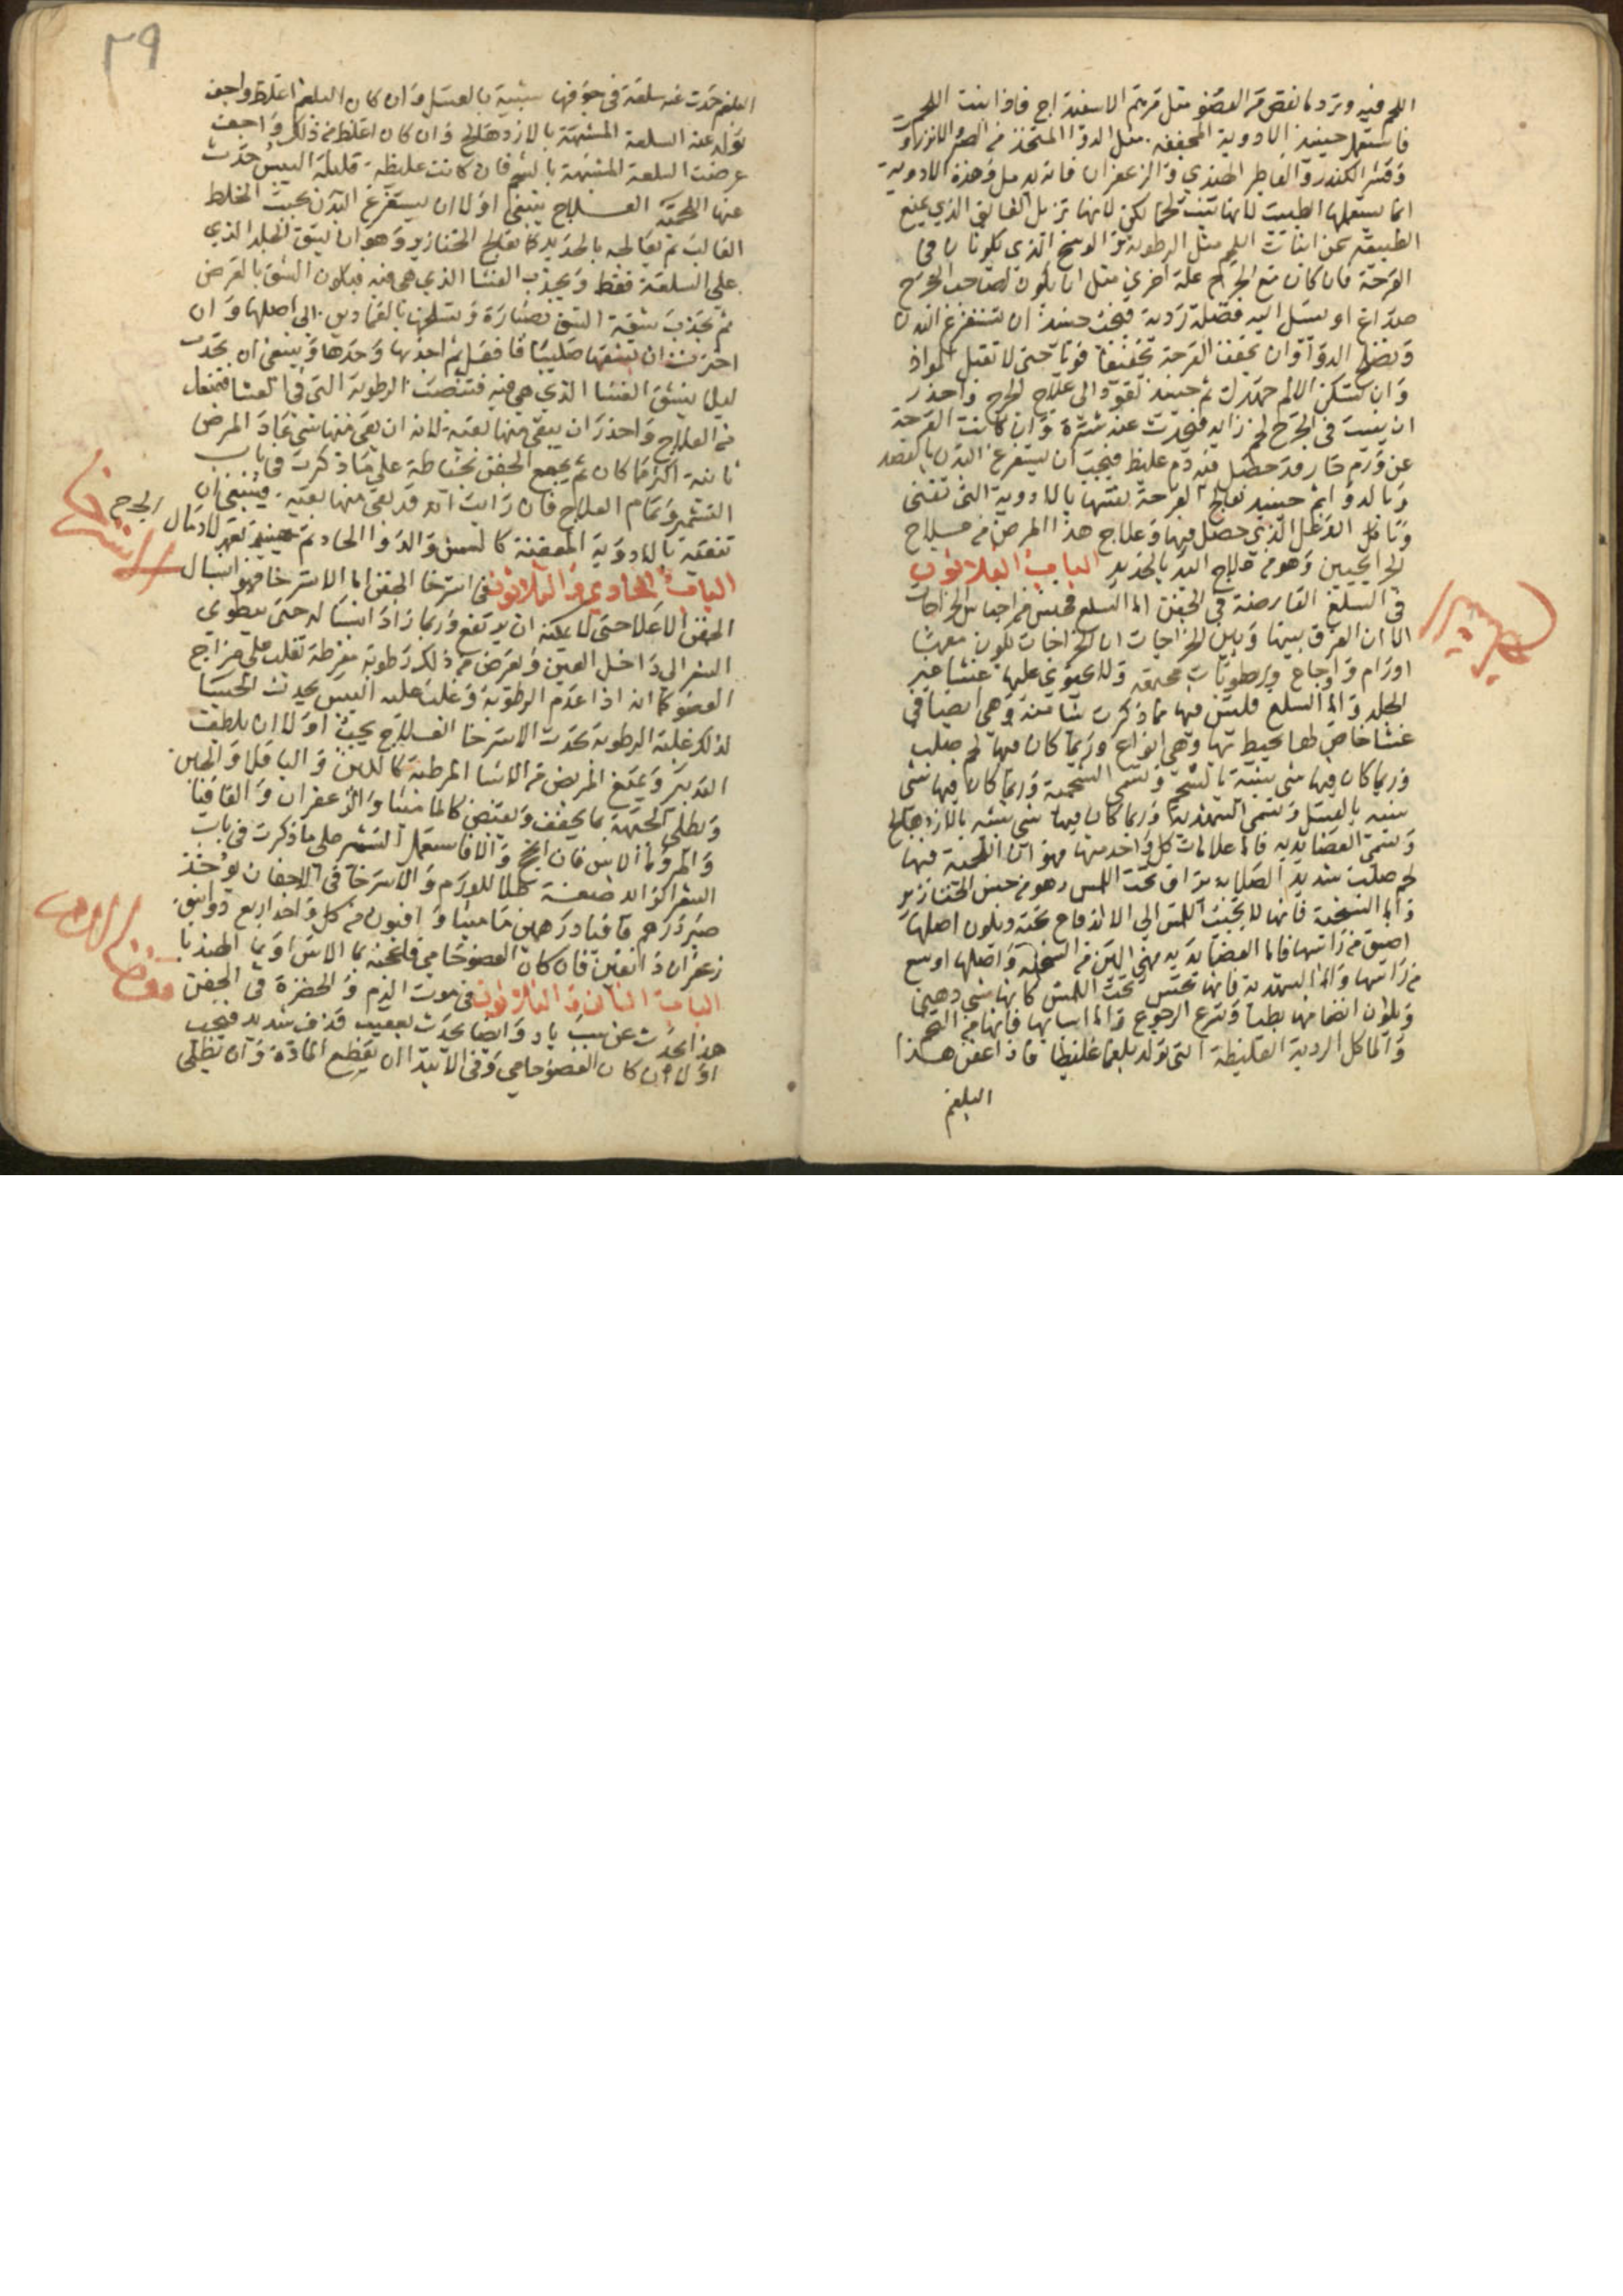 اللحم فيه وترد ما نقص من العضو مثل مرهم الاسفيداج فاذا نبت اللحم
فاستعمل حينيذ الادوية المجففه مثل الدوا المتخذ من الصبر والانزروت
وقشر الكندر والفاطر الهندي والزعفران فانه يدمل وهذه الادوية
انما يستعملها الطبيب لا انها تنبت لحما لكن لانها تزيل العايق الذي يمنع
الطبيعه عن انبات اللحم مثل الرطوبة والوسخ الذي يكونان في
القرحة فان كان مع الجرح علة اخري مثل ان يكون لصاحب الجرح
صداع او يسيل اليه فضلة ردية فيجب حينيذ ان تستفرغ البدن
ويصلح الدوا وان تجفف القرحة تجفيفا قويا حتى لا تقبل المواد
وان تسكن الالم جهدك ثم حينيذ تعود الى علاج الجرح واحذر
ان ينبت في الجرح لحم زايد فيحدث عنه شترة وان كانت القرحة
عن ورم حار قد حصل فيه دم غليظ فيجب ان يستفرغ البدن بالفصد
وبالدوا ثم حينيذ تعالج القرحة نفسها بالادوية التي تفني
وتاكل الدغل الذي حصل فيها وعلاج هذا المرض من علاج
الجرايحيين وهو من علاج اليد بالحديد الباب الثلاثون
في السلع العارضة في الجفن اما السلع فجنس من اجناس الخراجات
الا ان الفرق بينها وبين الخراجات ان الخراجات تكون معها
اورام واوجاع ورطوبات محترقه ولا يحتوي عليها غشا غير
الجلد واما السلع فليس فيها مما ذكرت شيا منه وهي ايضا في
غشا خاص لها يحيط بها وهي انواع وربما كان فيها لحم صلب
وربما كان فيها شي شبيه بالشحم وتسمى الشحمية وربما كان فيها شي
شبيه بالعسل وتسمى الشهدية وربما كان فيها شي يشبه بالازدهالج
وتسمى العصايديه فاما علامات كل واحد منها فهو ان اللحمية فيها
لحم صلب شديد الصلابة يدافع تحت اللمس وهو من جنس الخنازير
واما الشحمية فانها لا تجيب اللمس الى الاندفاع تحته ويكون اصلها
اضيق من راسها فاما العصايدية فهي الين من الشحمية واصلها اوسع
من راسها واما الشهدية فانها تحس تحت اللمس كانها شي دهني
ويكون انغمازها بطيا وتسرع الرجوع واما اسبابها فانها من التخم
والماكل الردية الغليظة التي تولد بلغما غليظا فاذا عفن هذا
البلغم
٣٩
البلغم حدث عنه سلعة في جوفها شبيه بالعسل وان كان البلغم اغلظ واجف
تولد عنه السلعة المشبهة بالازدهالج وان كان اغلظ من ذلك واجف
عرضت السلعة المشبهة بالشحم فان كانت غليظة قليلة اليبس حدث
عنها اللحمية العلاج ينبغي اولا ان يستفرغ البدن بحسب الخلط
الغالب ثم تعالجه بالحديد كما تعالج الخنازير وهو ان تشق الجلد الذي
على السلعة فقط وتجذب الغشا الذي هي فيه فيكون الشق بالعرض
ثم تجذب شقية الشق بصنارة وتسلخها بالقمادين الى اصلها وان
اخترت ان تشقها صليبيا فافعل ثم اجذبها وحدها وينبغي ان تجذب
ليلا ينشق الغشا الذي هي فيه فتنصب الرطوبة التي في الغشا فتمنعك
من العلاج واحذر ان يبقى منها بقية لانه ان بقى منها شي عاد المرض
ثانية اكثر ما كان ثم تجمع الجفن بخياطة على ما ذكرت في باب
التشمير وتمام العلاج فان رايت انه قد بقى منها بقية فينبغي ان
تنقيه بالادوية المعفنة كالسمن والدوا الحاد ثم حينيذ تعود لادمال الجرح
الباب الحادي والثلاثون في استرخا الجفن اما الاسترخا فهو انسبال
الاسترخا
الجفن الاعلا حتى لا يمكنه ان يرتفع وربما زاد انسباله حتى ينطوي
الشعر الى داخل العين ويعرض من ذلك رطوبة مفرطة تغلب على مزاج
العضو كما انه اذا عدم الرطوبة وغلب عليه اليبس يحدث الجسا
لذلك غلبة الرطوبة تحدث الاسترخا العلاج يجب اولا ان يلطف
التدبير ويمنع المريض من الاشيا المرطبة كاللبن والباقلا والجبن
ويطلى الجبهة بما يجفف ويقبض كالماميثا والزعفران والقاقيا
والمر وما الاس فان انجح والا فاستعمل التشمير على ما ذكرت في باب
الشعر الزايد صفة طلا للورم والاسترخا في الاجفان يوخذ
صبر درهم قاقيا درهمين ماميثا وافيون من كل واحد اربع دوانيق
زعفران دانقين فان كان العضو حامي فلتعجنه بما الاس او بما الهندبا
الباب الثاني والثلاثون في موت الدم والخضرة في الجفن
هذا يحدث عن سبب باد وايضا يحدث بعقيب قذف شديد فيجب
اولا ان كان العضو حامي وفي الابتدا ان يقطع المادة وان يطلى